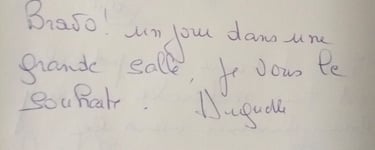 Bravo! un jour dans une
grande salle, je vous le
souhaite.